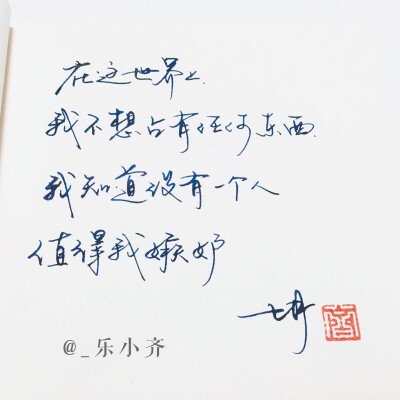 在这世界上
我不想占有任何东西
我知道没有一个人
值得我嫉妒
@_乐小齐